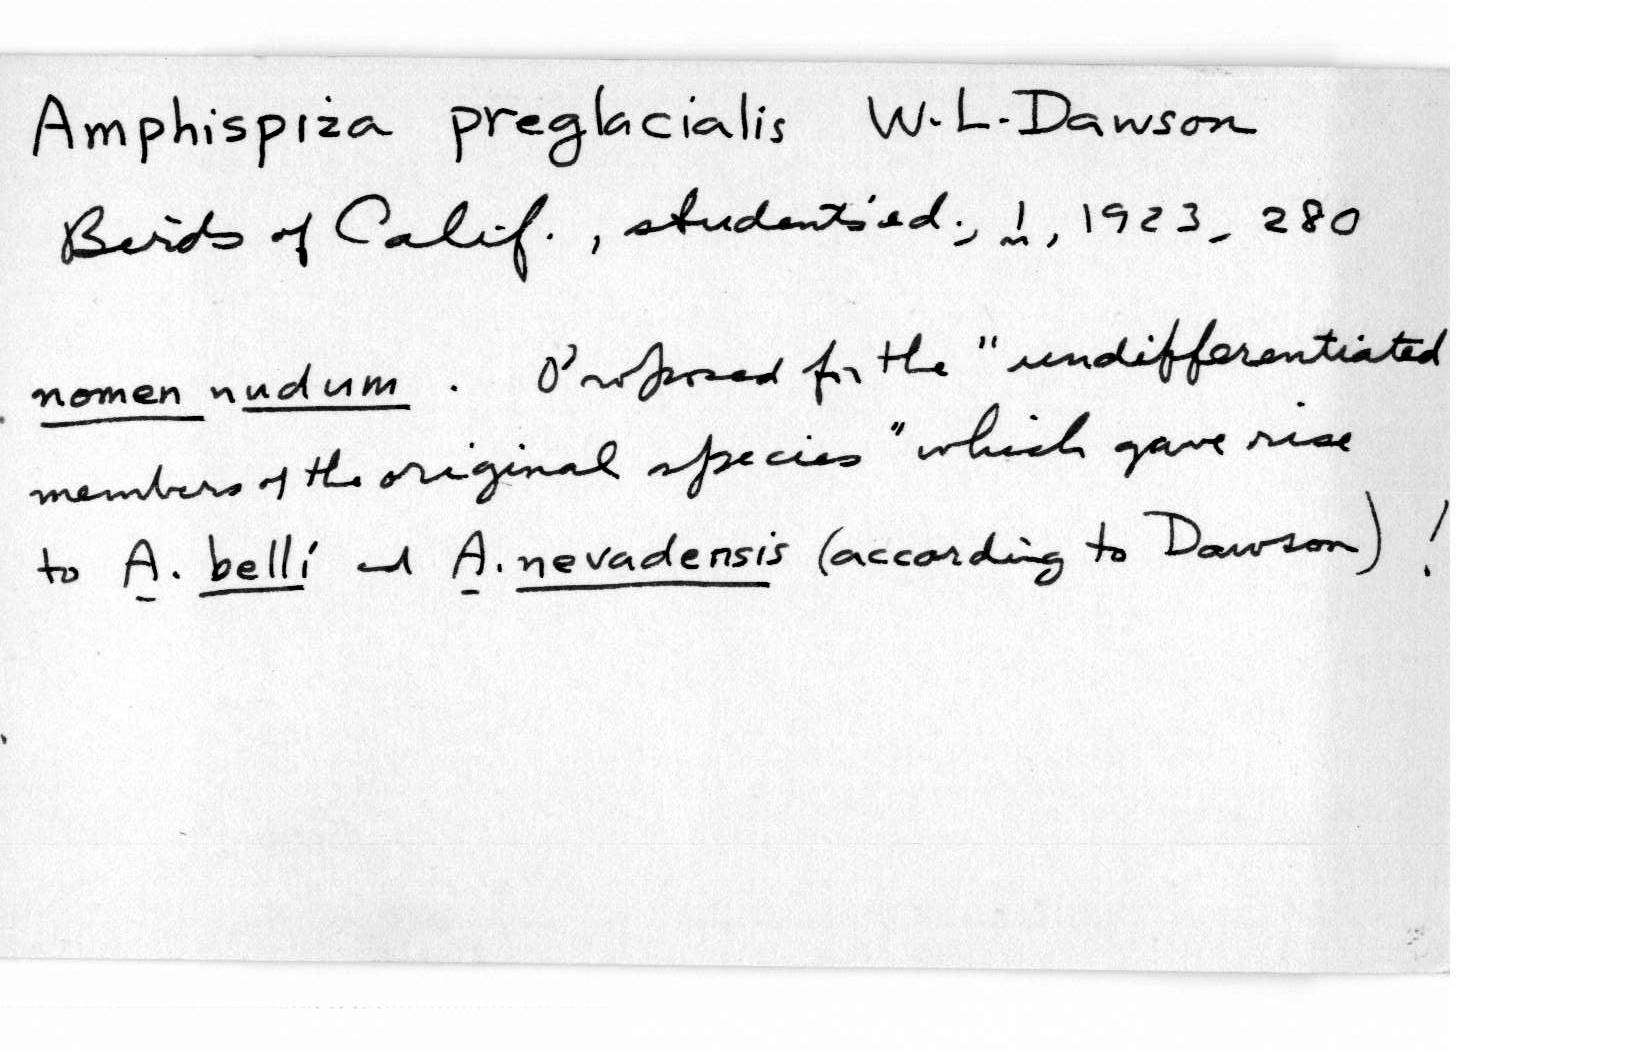 Amphispiza preglacialis W.L. Dawson
Birds of Calif., students' ed., 1, 1923, 280
nomen nudum. Proposed for the "undifferentiated
members of the original species" which gave rise
to A. belli and A. nevadensis (according to Dawson)!